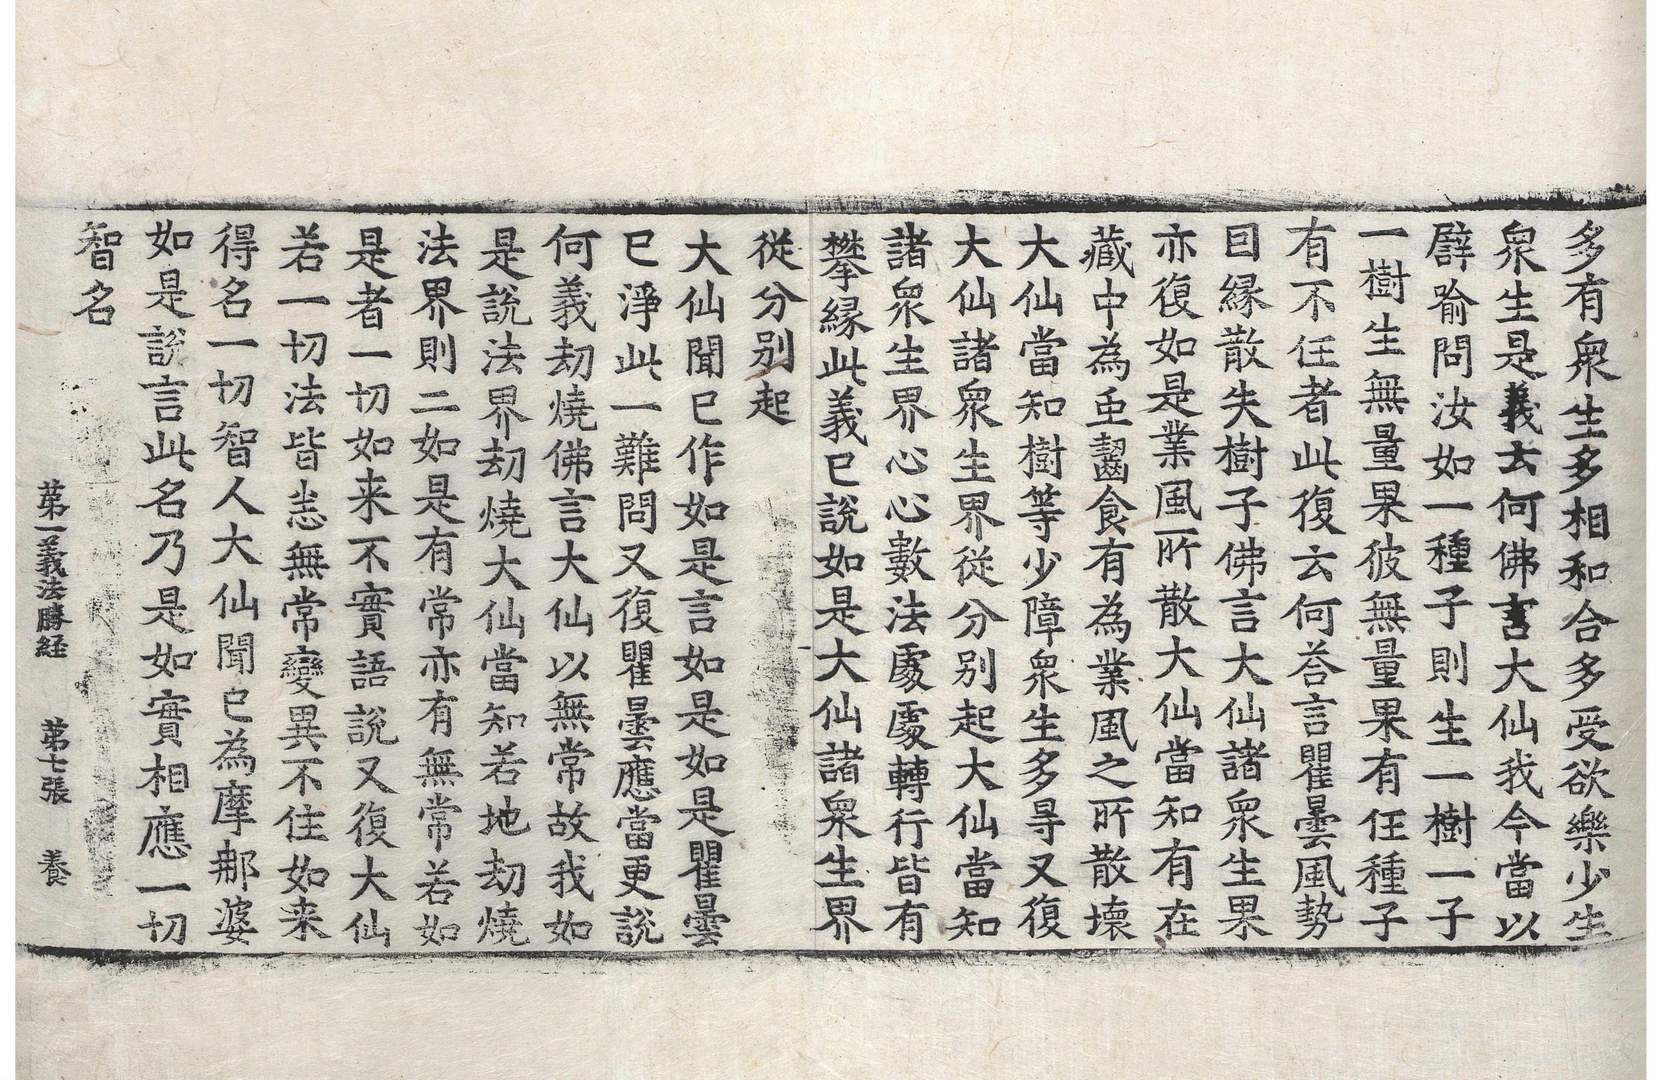 多有衆生多相和合多受欲樂少生
衆生是義云何佛言大仙我今當以
譬喻問汝如一種子則生一樹一子
一樹生無量果彼無量果有任種子
有不任者此復云何荅言瞿曇風勢
因縁散失樹子佛言大仙諸衆生果
亦復如是業風所散大仙當知有在
藏中為䖝齧食有為業風之所散壞
大仙當知樹等少障衆生多㝵又復
大仙諸衆生界從分別起大仙當知
諸衆生界心心數法處處轉行皆有
攀縁此義已說如是大仙諸衆生界
從分別起
大仙聞已作如是言如是如是瞿曇
已淨此一難問又復瞿曇應當更說
何義劫燒佛言大仙以無常故我如
是說法界劫燒大仙當知若地劫燒
法界則二如是有常亦有無常若如
是者一切如来不實語說又復大仙
若一切法皆恙無常變異不住如来
得名一切智人大仙聞已為摩那婆
如是說言此名乃是如實相應一切
智名
苐一義法勝経 苐七張 養